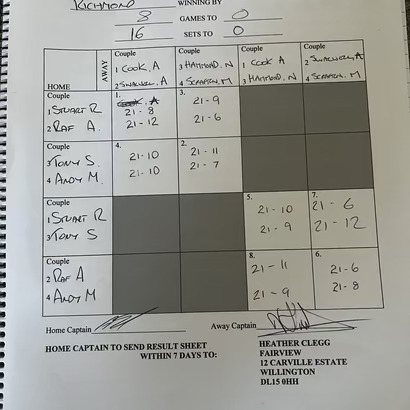 RICHMOND WINNING BY
8 GAMES TO 0
16 SETS TO 0
HOME AWAY
Couple Couple
1 COOK, A 3 HAMMOND, N 1 COOK A
4 SCRAFTON, M 3 HAMMOND, N 4 SCRAFTON, M
Couple 1. 3.
1 STUART R 21-8 21-9
2 RAF A. 21-12 21-6
Couple 4. 2.
3 TONY S. 21-10 21-11
4 ANDY M. 21-10 21-7
Couple 5. 7.
1 STUART R 21-10 21-6
3 TONY S 21-9 21-12
Couple 8. 6.
2 RAF A 21-11 21-6
4 ANDY M 21-9 21-8
Home Captain Away Captain
HOME CAPTAIN TO SEND RESULT SHEET
WITHIN 7 DAYS TO:
HEATHER CLEGG
FAIRVIEW
12 CARVILLE ESTATE
WILLINGTON
DL15 0HH